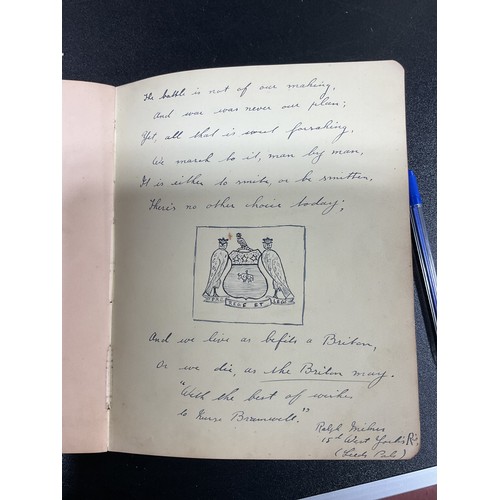 The battle is not of our making,
And war was never our plan;
Yet, all that is sweet forsaking,
We march to it, man by man,
It is either to smite, or be smitten,
There's no other choice today;
PRO REGE ET LEGE
And we live as befits a Briton,
Or we die, as the Briton may.
"With the best of wishes
to Nurse Bramwell."
Ralph Milner
15th West Yorks R.
(Leeds Pals)